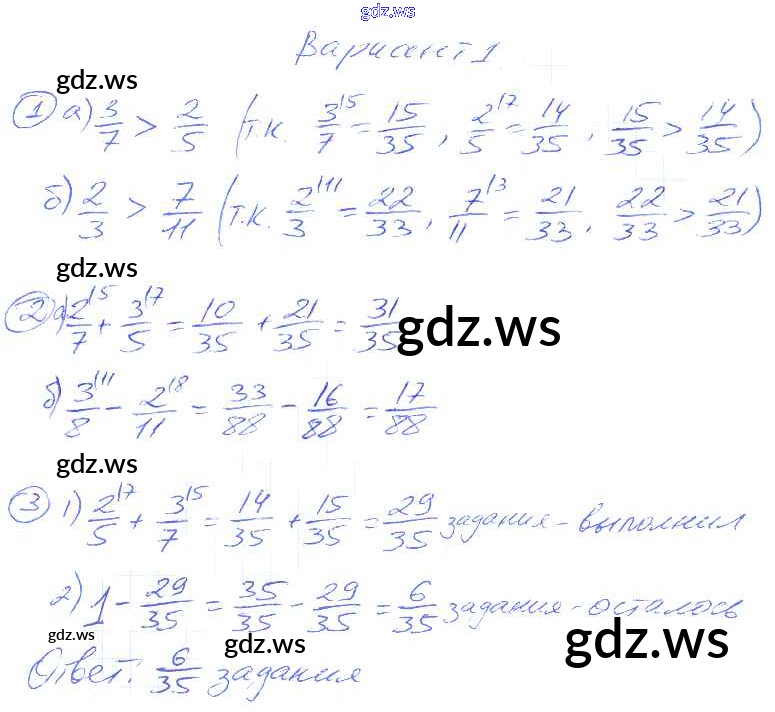 gdz.ws
Вариант 1
gdz.ws
① а) 3/7 > 2/5 (т.к. 3/7 \5 = 15/35, 2/5 \7 = 14/35, 15/35 > 14/35)
б) 2/3 > 7/11 (т.к. 2/3 \11 = 22/33, 7/11 \3 = 21/33, 22/33 > 21/33)
gdz.ws
② а) 2/7 \5 + 3/5 \7 = 10/35 + 21/35 = 31/35
gdz.ws
б) 3/8 \11 - 2/11 \8 = 33/88 - 16/88 = 17/88
gdz.ws
③ 1) 2/5 \7 + 3/7 \5 = 14/35 + 15/35 = 29/35 задания - выполнил
2) 1 - 29/35 = 35/35 - 29/35 = 6/35 задания - осталось
gdz.ws gdz.ws gdz.ws
Ответ: 6/35 задания